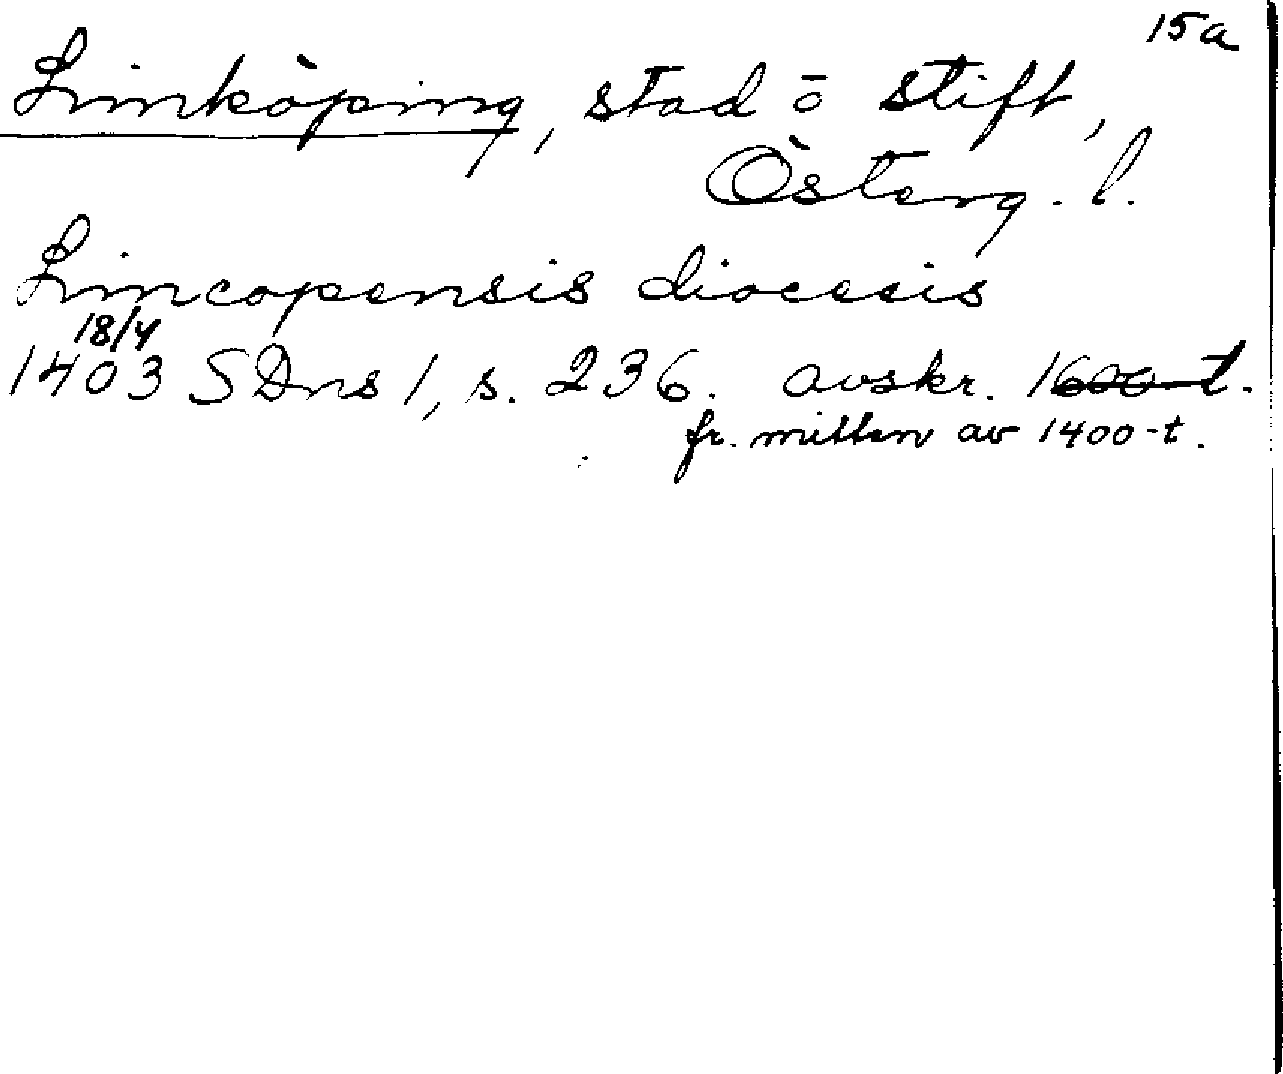 15a
Linköping, stad o stift,
Österg. l.
Lincopensis diocesis
18/4
1403 SDns 1, s. 236. avskr. 1600-t.
fr. mitten av 1400-t.